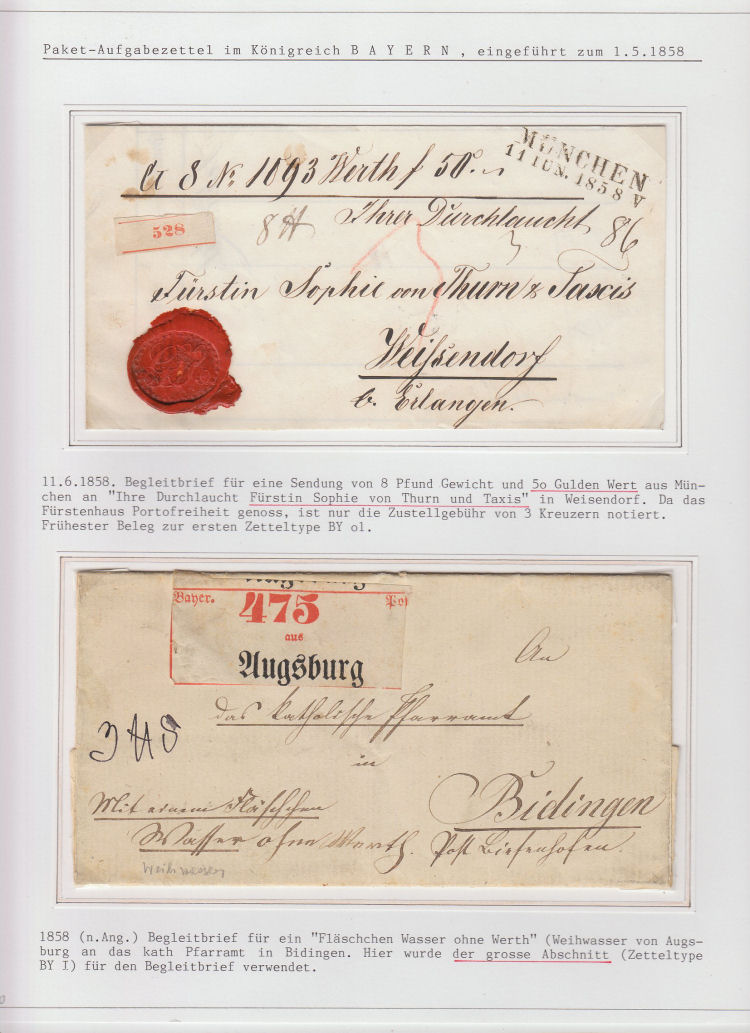 Paket-Aufgabezettel im Königreich B A Y E R N , eingeführt zum 1.5.1858
MÜNCHEN
11 IUN. 1858 V
8 No 1093 Werth f 50.
528
8 ℔
Ihrer Durchlaucht
86
3
Fürstin Sophie von Thurn & Taxis
Weihsendorf
b. Erlangen.
11.6.1858. Begleitbrief für eine Sendung von 8 Pfund Gewicht und 5o Gulden Wert aus Mün-
chen an "Ihre Durchlaucht Fürstin Sophie von Thurn und Taxis" in Weisendorf. Da das
Fürstenhaus Portofreiheit genoss, ist nur die Zustellgebühr von 3 Kreuzern notiert.
Frühester Beleg zur ersten Zetteltype BY o1.
Bayer. 475 Po
aus
Augsburg
An
das katholische Pfarramt
in
Bidingen
Mit einem Fläschchen
Wasser ohne Werth.
Post Biesenhofen.
Weihwasser
1858 (n.Ang.) Begleitbrief für ein "Fläschchen Wasser ohne Werth" (Weihwasser von Augs-
burg an das kath Pfarramt in Bidingen. Hier wurde der grosse Abschnitt (Zetteltype
BY I) für den Begleitbrief verwendet.